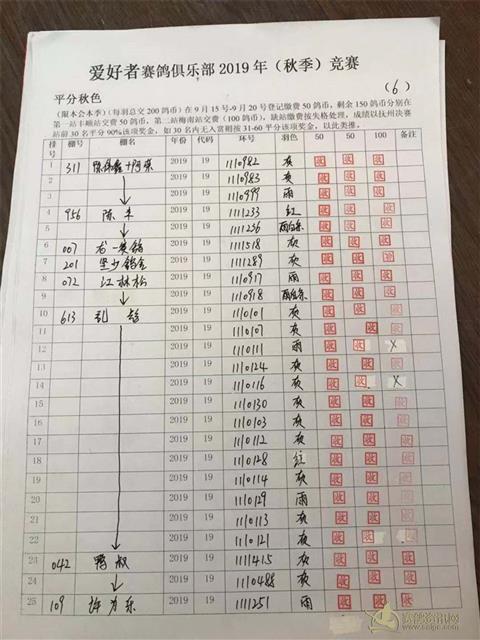 爱好者赛鸽俱乐部2019年（秋季）竞赛
（6）
平分秋色
(限本会本季)（每羽总交200鸽币）在9月15号-9月20号登记缴费50鸽币，剩余150鸽币分别在
第一站丰顺站交费50鸽币，第二站梅南站交费（100鸽币），缺站缴费按失格处理，成绩以抚州决赛
站前30名平分90%该项奖金，如30名内无入赏则按31-60平分该项奖金，以此类推。
排号 棚号 棚名 年份 代码 环号 羽色 50 50 100 备注
1 311 2019 19 1110982 灰 收 收 收
2 2019 19 1110983 灰 收 收 收
3 2019 19 1110999 雨 收 收 收
4 956 陈丰 2019 19 1111233 红 收 收 收
5 2019 19 1111236 雨白条 收 收 收
6 007 龙一赛鸽 2019 19 1111518 灰 收 收 收
7 201 坚少鸽舍 2019 19 1111289 灰 收 收 收
8 072 江林松 2019 19 1110917 雨 收 收 收
9 2019 19 1110918 雨白条 收 收 收
10 613 2019 19 1110101 灰 收 收 收
11 2019 19 1110107 灰 收 收 收
12 2019 19 1110111 雨 收 收 X
13 2019 19 1110124 灰 收 收 收
14 2019 19 1110116 灰 收 收 X
15 2019 19 1110130 灰 收 收 收
16 2019 19 1110103 灰 收 收 收
17 2019 19 1110112 灰 收 收 收
18 2019 19 1110128 红 收 收 收
19 2019 19 1110114 灰 收 收 收
20 2019 19 1110129 雨 收 收 收
21 2019 19 1110113 灰 收 收 收
22 2019 19 1110121 灰 收 收 收
23 042 2019 19 1111415 灰 收 收 收
24 2019 19 1110488 灰 收 收 收
25 109 许为乐 2019 19 1111251 雨 收 收 收